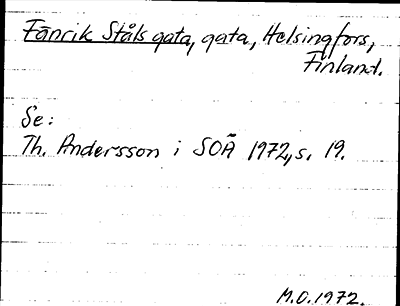 Fänrik Ståls gata, gata, Helsingfors,
Finland.
Se:
Th. Andersson i SOÄ 1972, s. 19.
M.O. 1972.